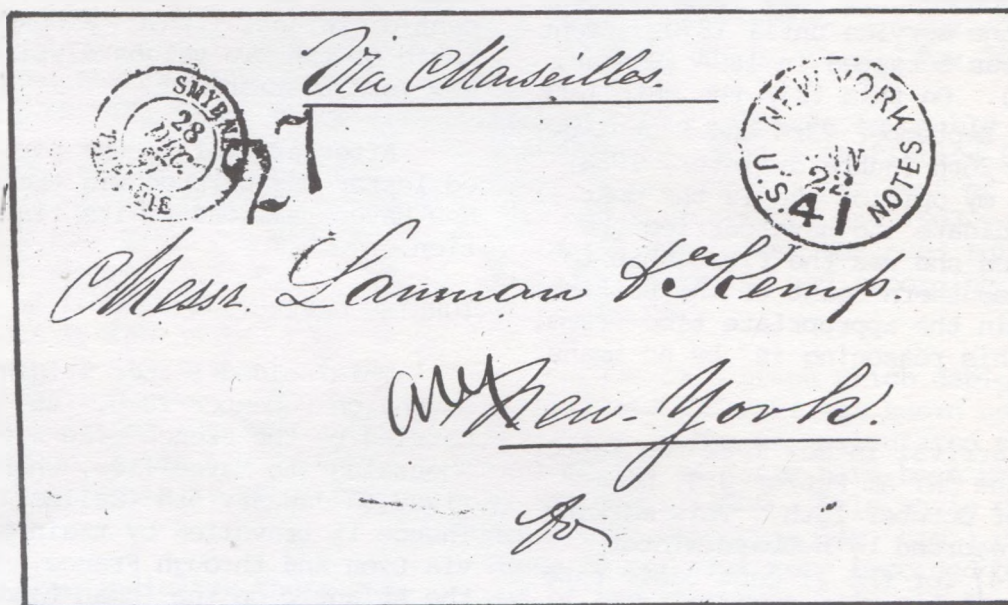 Via Marseilles.
SMYRNE
28
DEC.
27
NEW YORK
JAN
22
U.S. 41 NOTES
Messrs. Lanman & Kemp.
New-York.